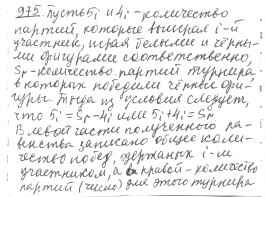 975 Пусть 5i и 4i - количество
партий, которые выиграл i-й
участник, играя белыми и чёрны-
ми фигурами соответственно,
Sr - количество партий турнира,
в которых победили чёрные фи-
гуры. Тогда из условия следует,
что 5i = Sr - 4i или 5i + 4i = Sr
В левой части полученного ра-
венства записано общее коли-
чество побед, одержаных i-м
участником, а в правой - количество
партий (число) для этого турнира